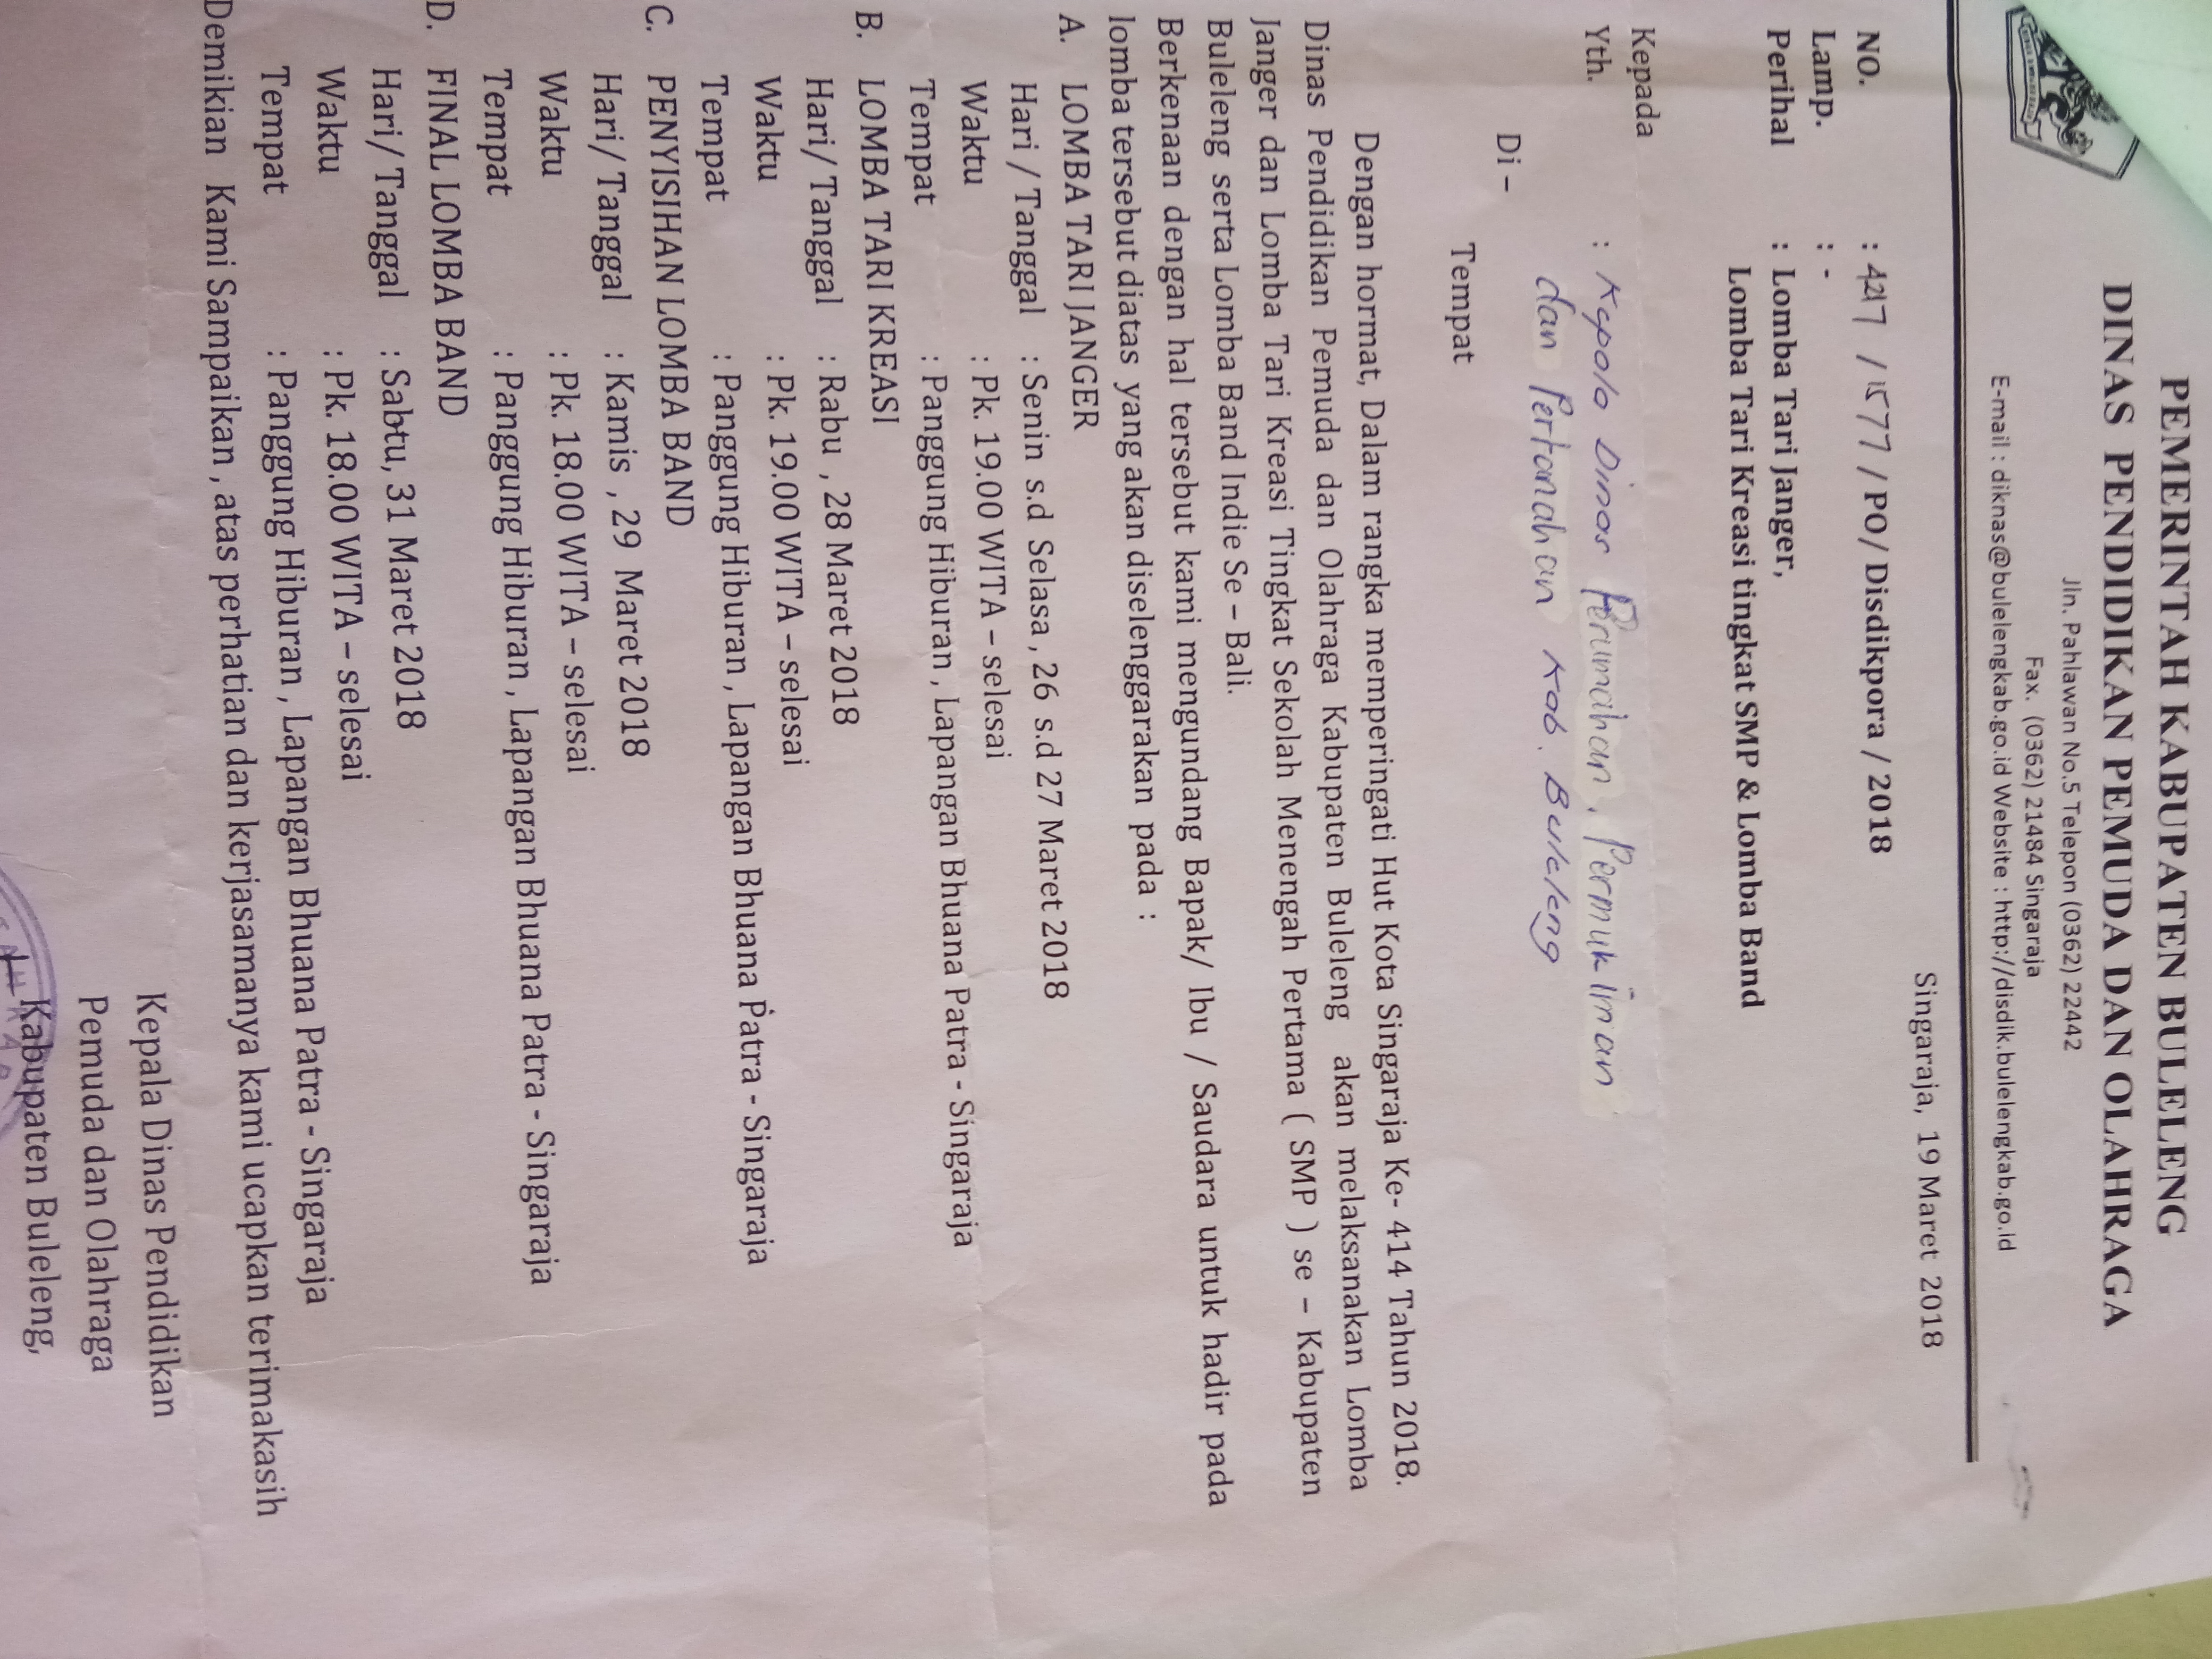 PEMERINTAH KABUPATEN BULELENG
DINAS PENDIDIKAN PEMUDA DAN OLAHRAGA
Jln. Pahlawan No.5 Telepon (0362) 22442
Fax. (0362) 21484 Singaraja
E-mail : diknas@bulelengkab.go.id Website : http://disdik.bulelengkab.go.id
Singaraja, 19 Maret 2018
NO. : / 1577 / PO/ Disdikpora / 2018
Lamp. : -
Perihal : Lomba Tari Janger,
Lomba Tari Kreasi tingkat SMP & Lomba Band
Kepada
Yth. : Kepala Dinas Perumahan, Permukiman
dan Pertanahan Kab. Buleleng
Di –
Tempat
Dengan hormat, Dalam rangka memperingati Hut Kota Singaraja Ke- 414 Tahun 2018.
Dinas Pendidikan Pemuda dan Olahraga Kabupaten Buleleng akan melaksanakan Lomba
Janger dan Lomba Tari Kreasi Tingkat Sekolah Menengah Pertama ( SMP ) se – Kabupaten
Buleleng serta Lomba Band Indie Se – Bali.
Berkenaan dengan hal tersebut kami mengundang Bapak/ Ibu / Saudara untuk hadir pada
lomba tersebut diatas yang akan diselenggarakan pada :
A. LOMBA TARI JANGER
Hari / Tanggal : Senin s.d Selasa , 26 s.d 27 Maret 2018
Waktu : Pk. 19.00 WITA – selesai
Tempat : Panggung Hiburan , Lapangan Bhuana Patra - Singaraja
B. LOMBA TARI KREASI
Hari/ Tanggal : Rabu , 28 Maret 2018
Waktu : Pk. 19.00 WITA – selesai
Tempat : Panggung Hiburan , Lapangan Bhuana Patra - Singaraja
C. PENYISIHAN LOMBA BAND
Hari/ Tanggal : Kamis , 29 Maret 2018
Waktu : Pk. 18.00 WITA – selesai
Tempat : Panggung Hiburan , Lapangan Bhuana Patra - Singaraja
D. FINAL LOMBA BAND
Hari/ Tanggal : Sabtu, 31 Maret 2018
Waktu : Pk. 18.00 WITA – selesai
Tempat : Panggung Hiburan , Lapangan Bhuana Patra - Singaraja
Demikian Kami Sampaikan , atas perhatian dan kerjasamanya kami ucapkan terimakasih
Kepala Dinas Pendidikan
Pemuda dan Olahraga
Kabupaten Buleleng,